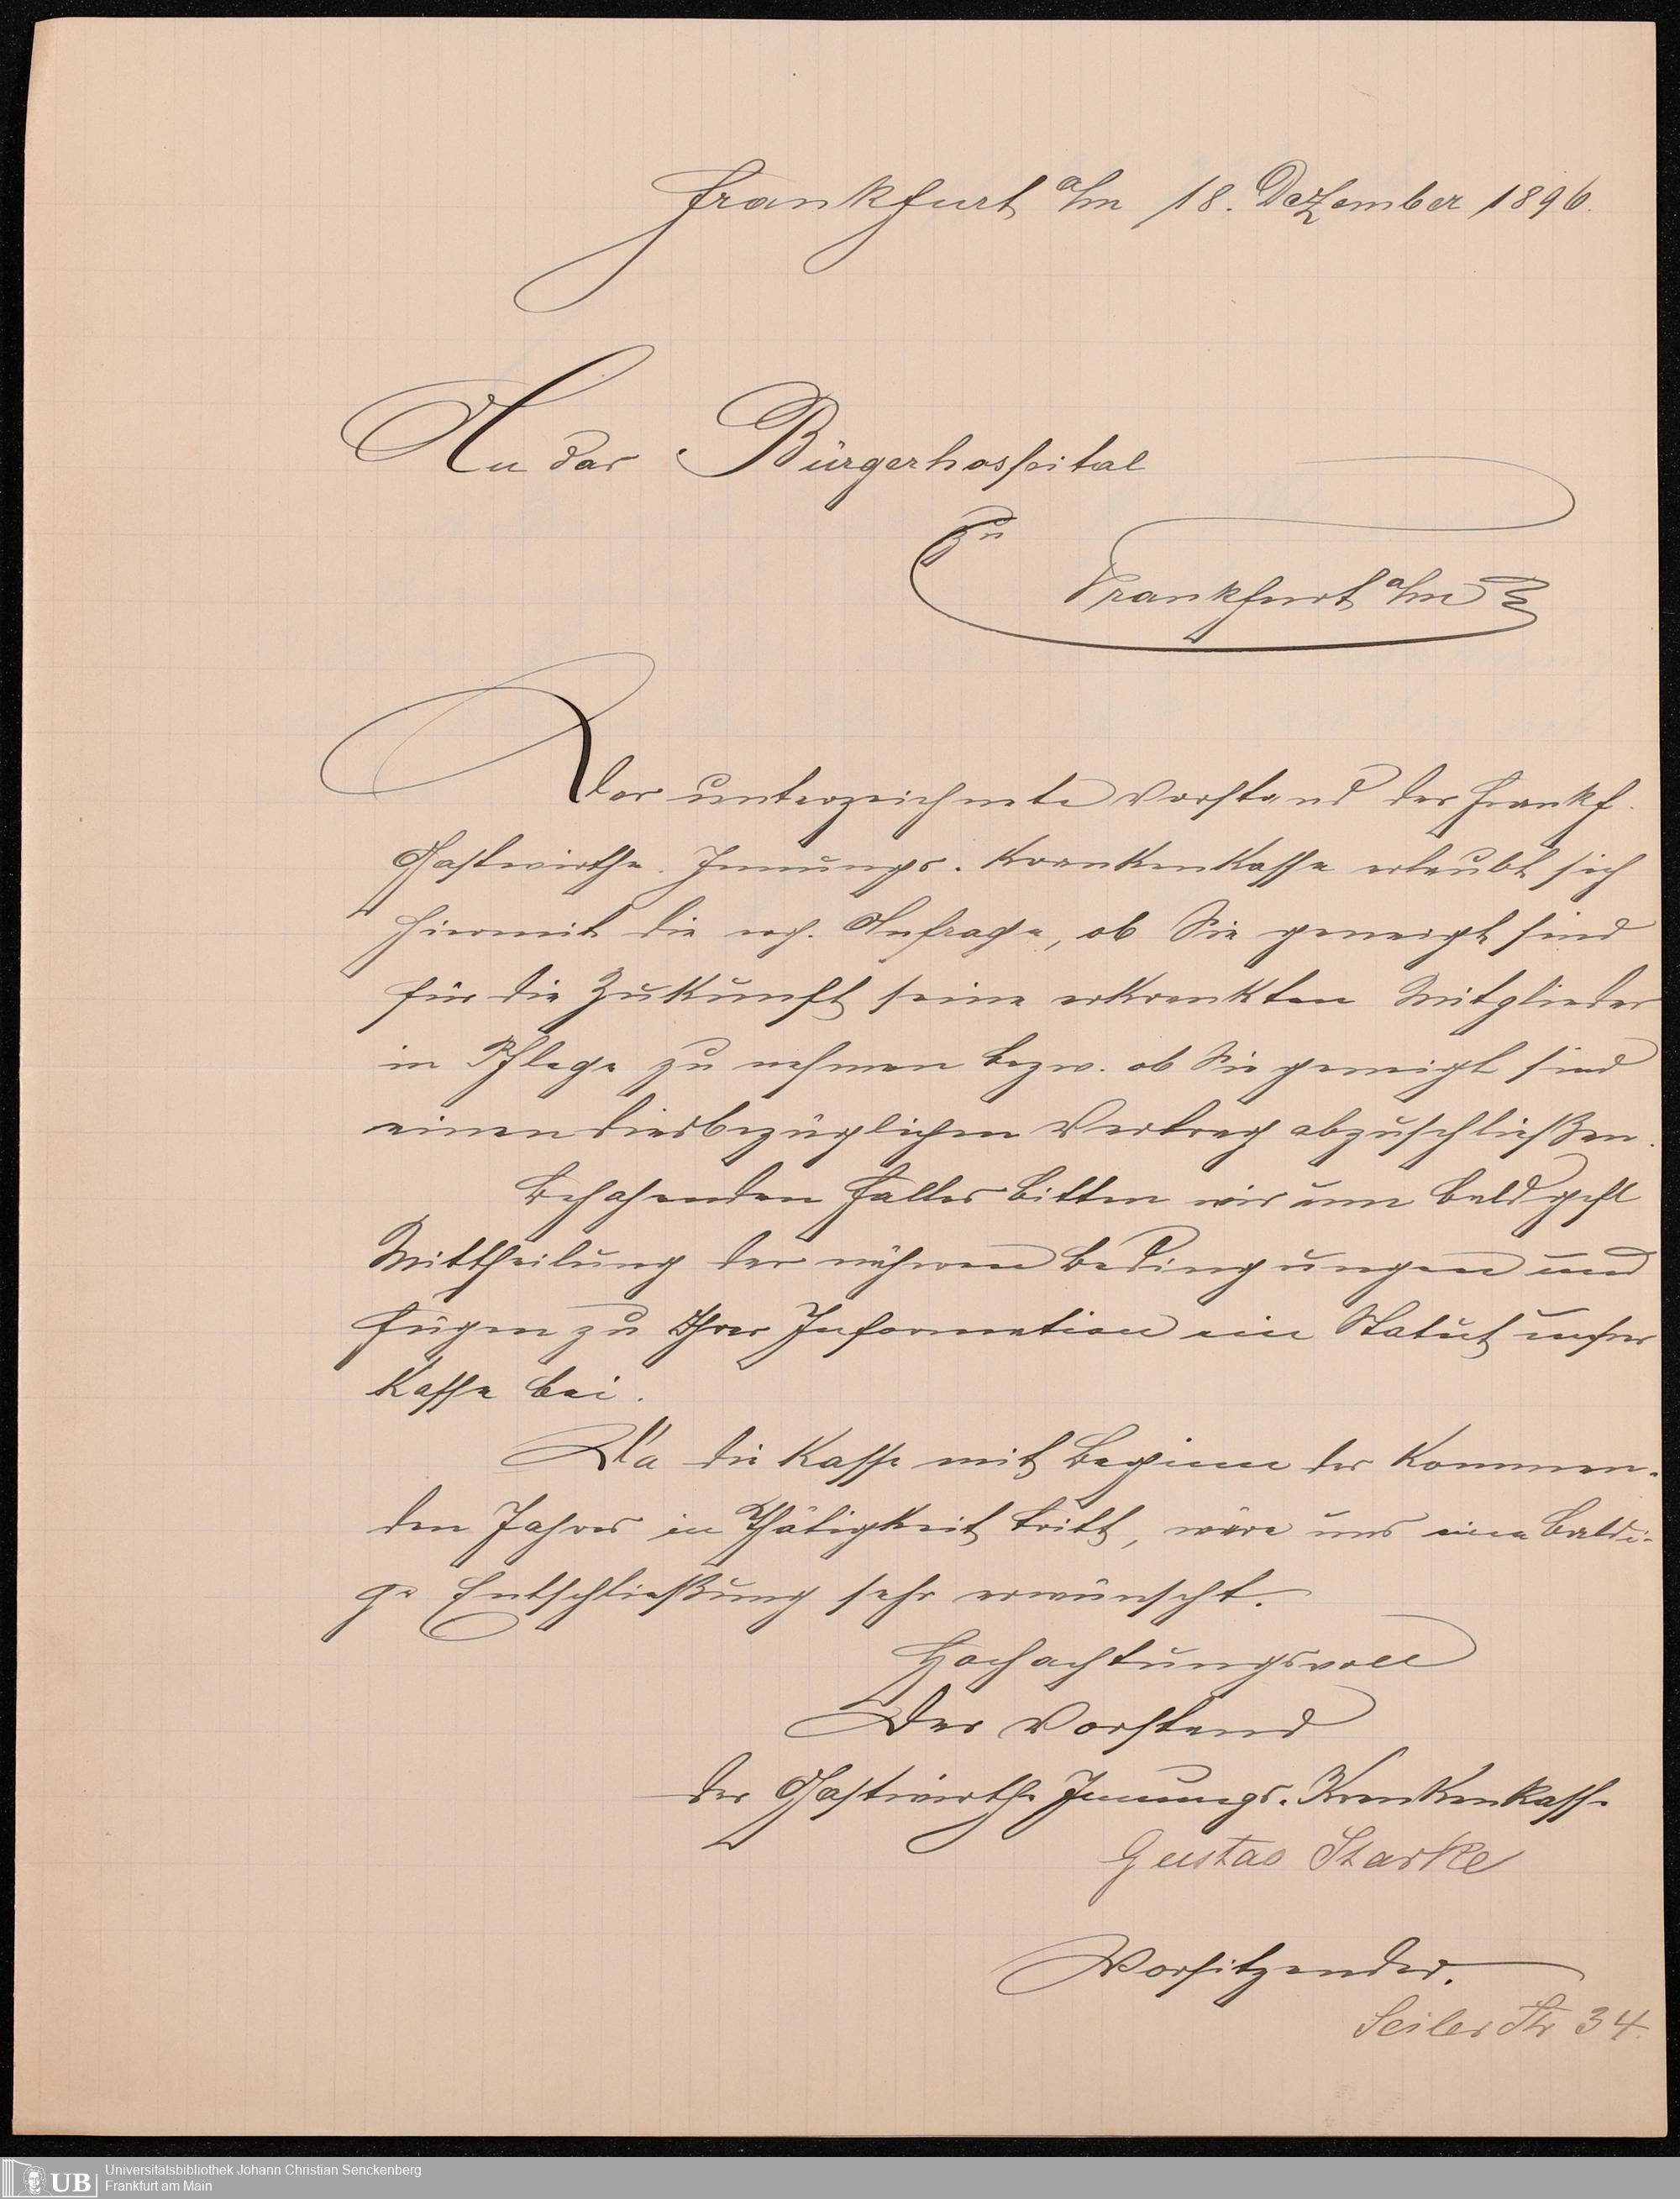 Frankfurt a/m 18. Dezember 1896.
An das Bürgerhospital
Zu
Frankfurt a/m
Der unterzeichnete Vorstand der Frankf.
Gastwirthe. Innungs. Krankenkasse erlaubt sich
hiermit die erg. Anfrage, ob Sie geneigt sind
für die Zukunft seine erkrankten Mitglieder
in Pflege zu nehmen bezw. ob Sie geneigt sind
einen diesbezüglichen Vertrag abzuschließen.
Bejahenden Falles bitten wir um bald gefl
Mittheilung der näheren Bedingungen und
fügen zu Ihrer Information ein Statut unsrer
Kasse bei.
Da die Kasse mit Beginn des kommen-
den Jahres in Thätigkeit tritt, wäre uns eine baldi-
ge Entschließung sehr erwünscht.
Hochachtungsvoll
Der Vorstand
der Gastwirthe Innungs. Krankenkasse
Gustav Starke
Vorsitzender.
Seiler Str 34.
UB
Universitätsbibliothek Johann Christian Senckenberg
Frankfurt am Main